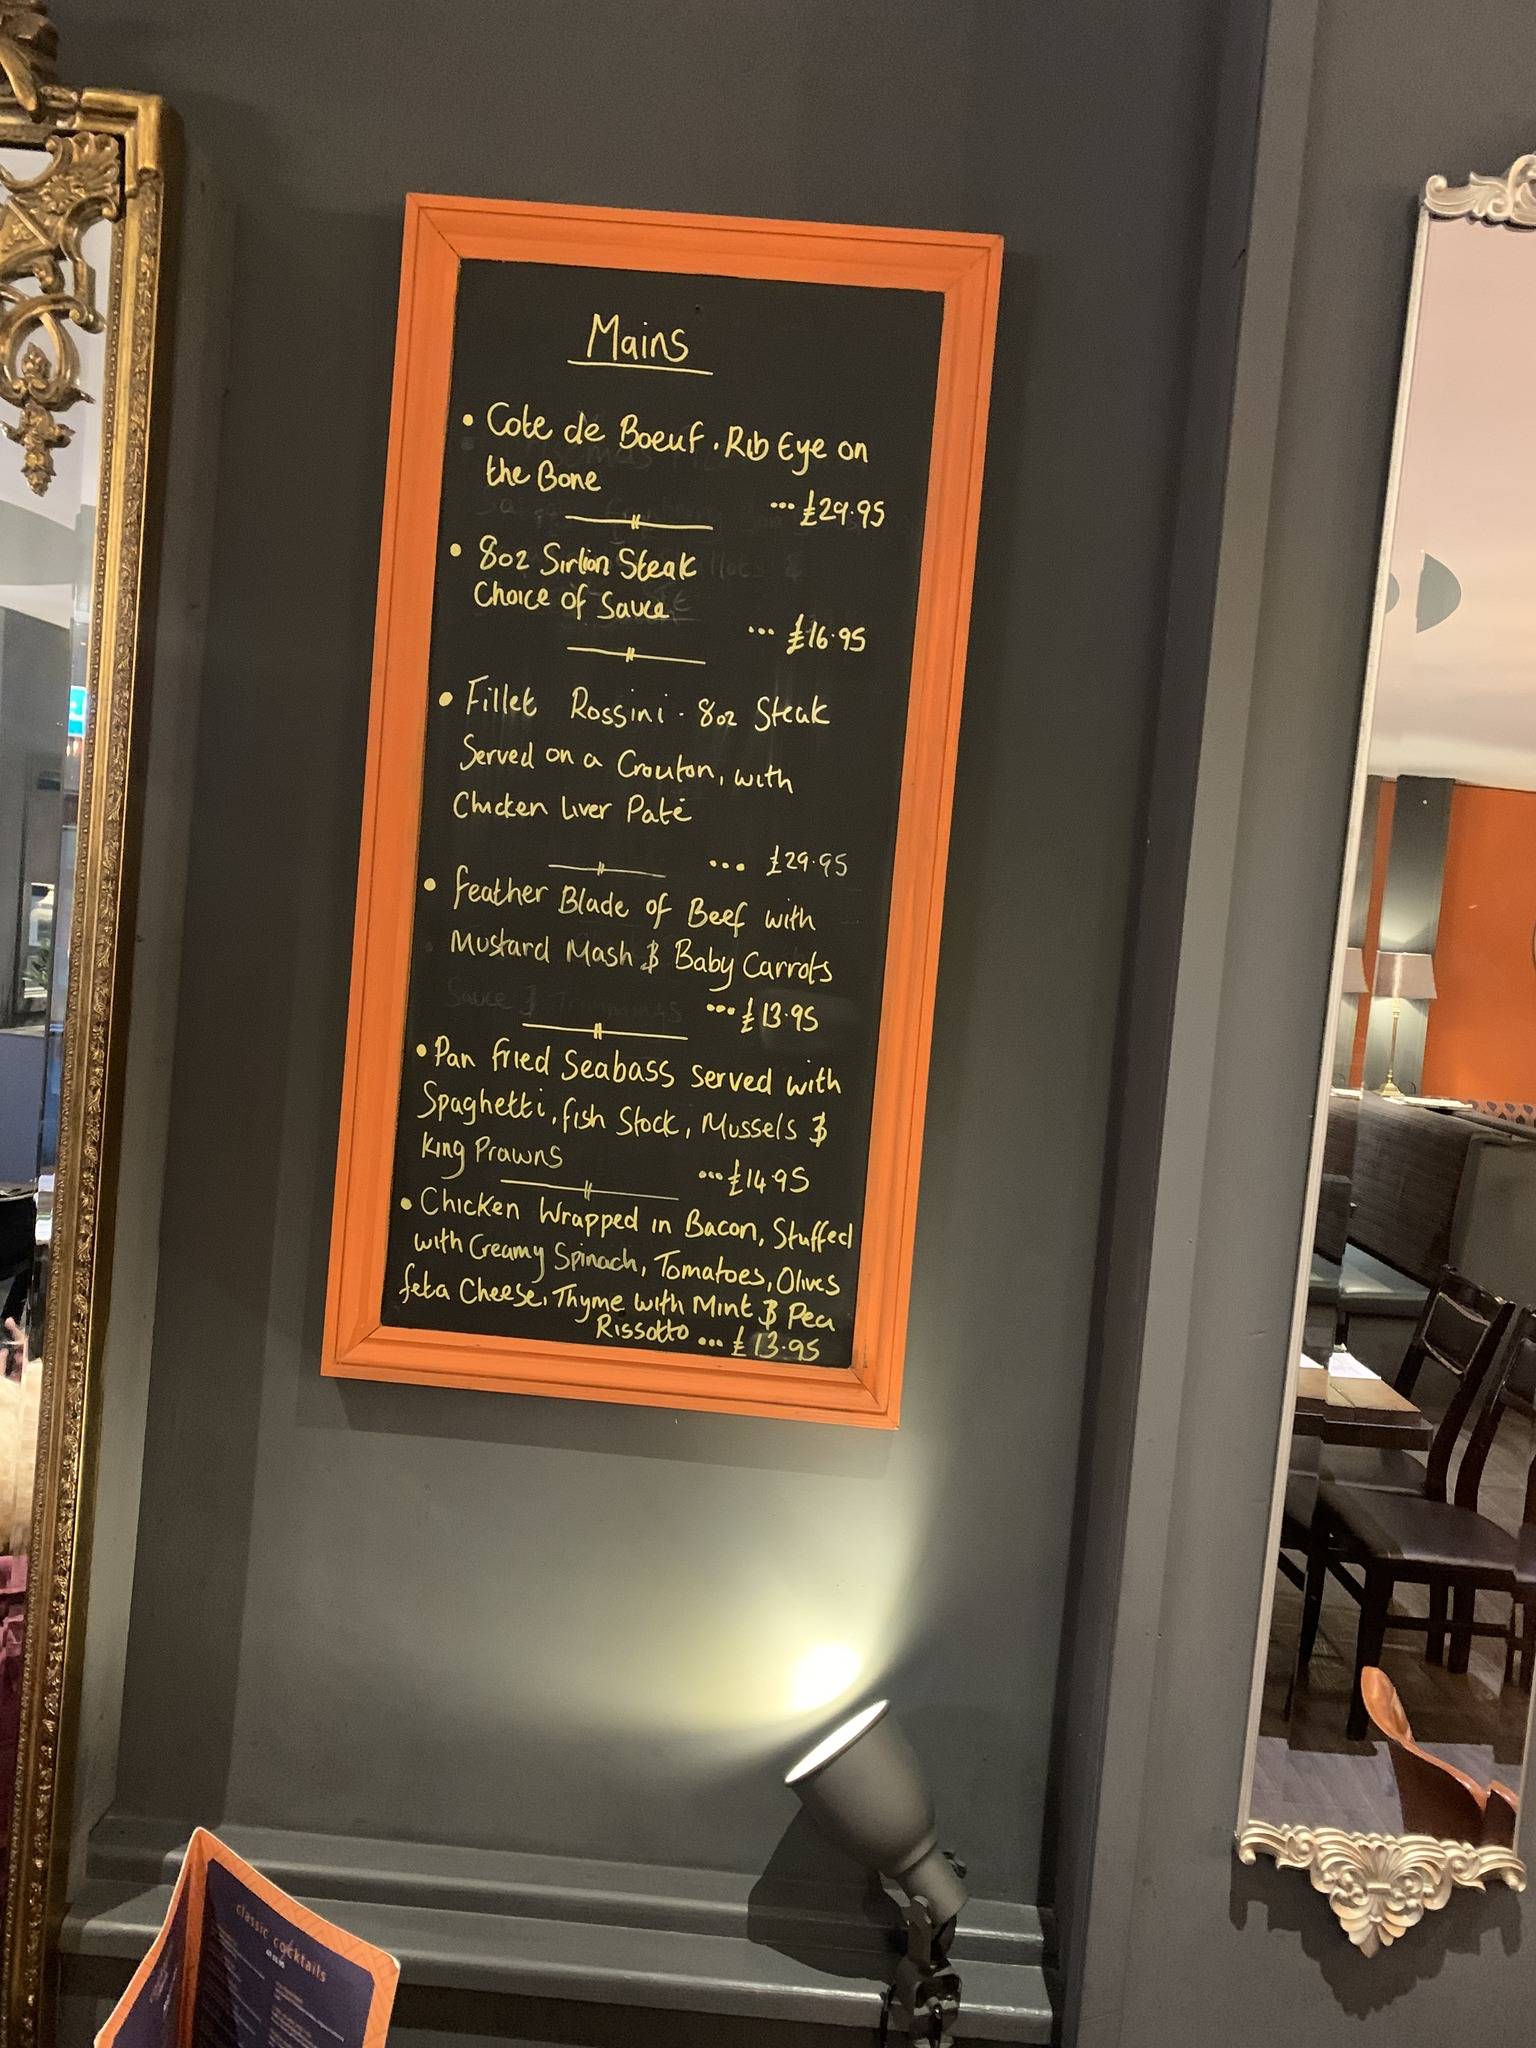 Mains
• Cote de Boeuf . Rib Eye on
the Bone
... £29.95
• 8oz Sirlion Steak
Choice of Sauce
... £16.95
• Fillet Rossini - 8oz Steak
Served on a Crouton, with
Chicken Liver Paté
... £29.95
• Feather Blade of Beef with
Mustard Mash & Baby Carrots
Sauce & Trimmings
... £13.95
• Pan Fried Seabass served with
Spaghetti, fish Stock, Mussels &
King Prawns
... £14.95
• Chicken Wrapped in Bacon, Stuffed
with Creamy Spinach, Tomatoes, Olives
feta Cheese, Thyme with Mint & Pea
Rissotto ... £13.95
classic cocktails